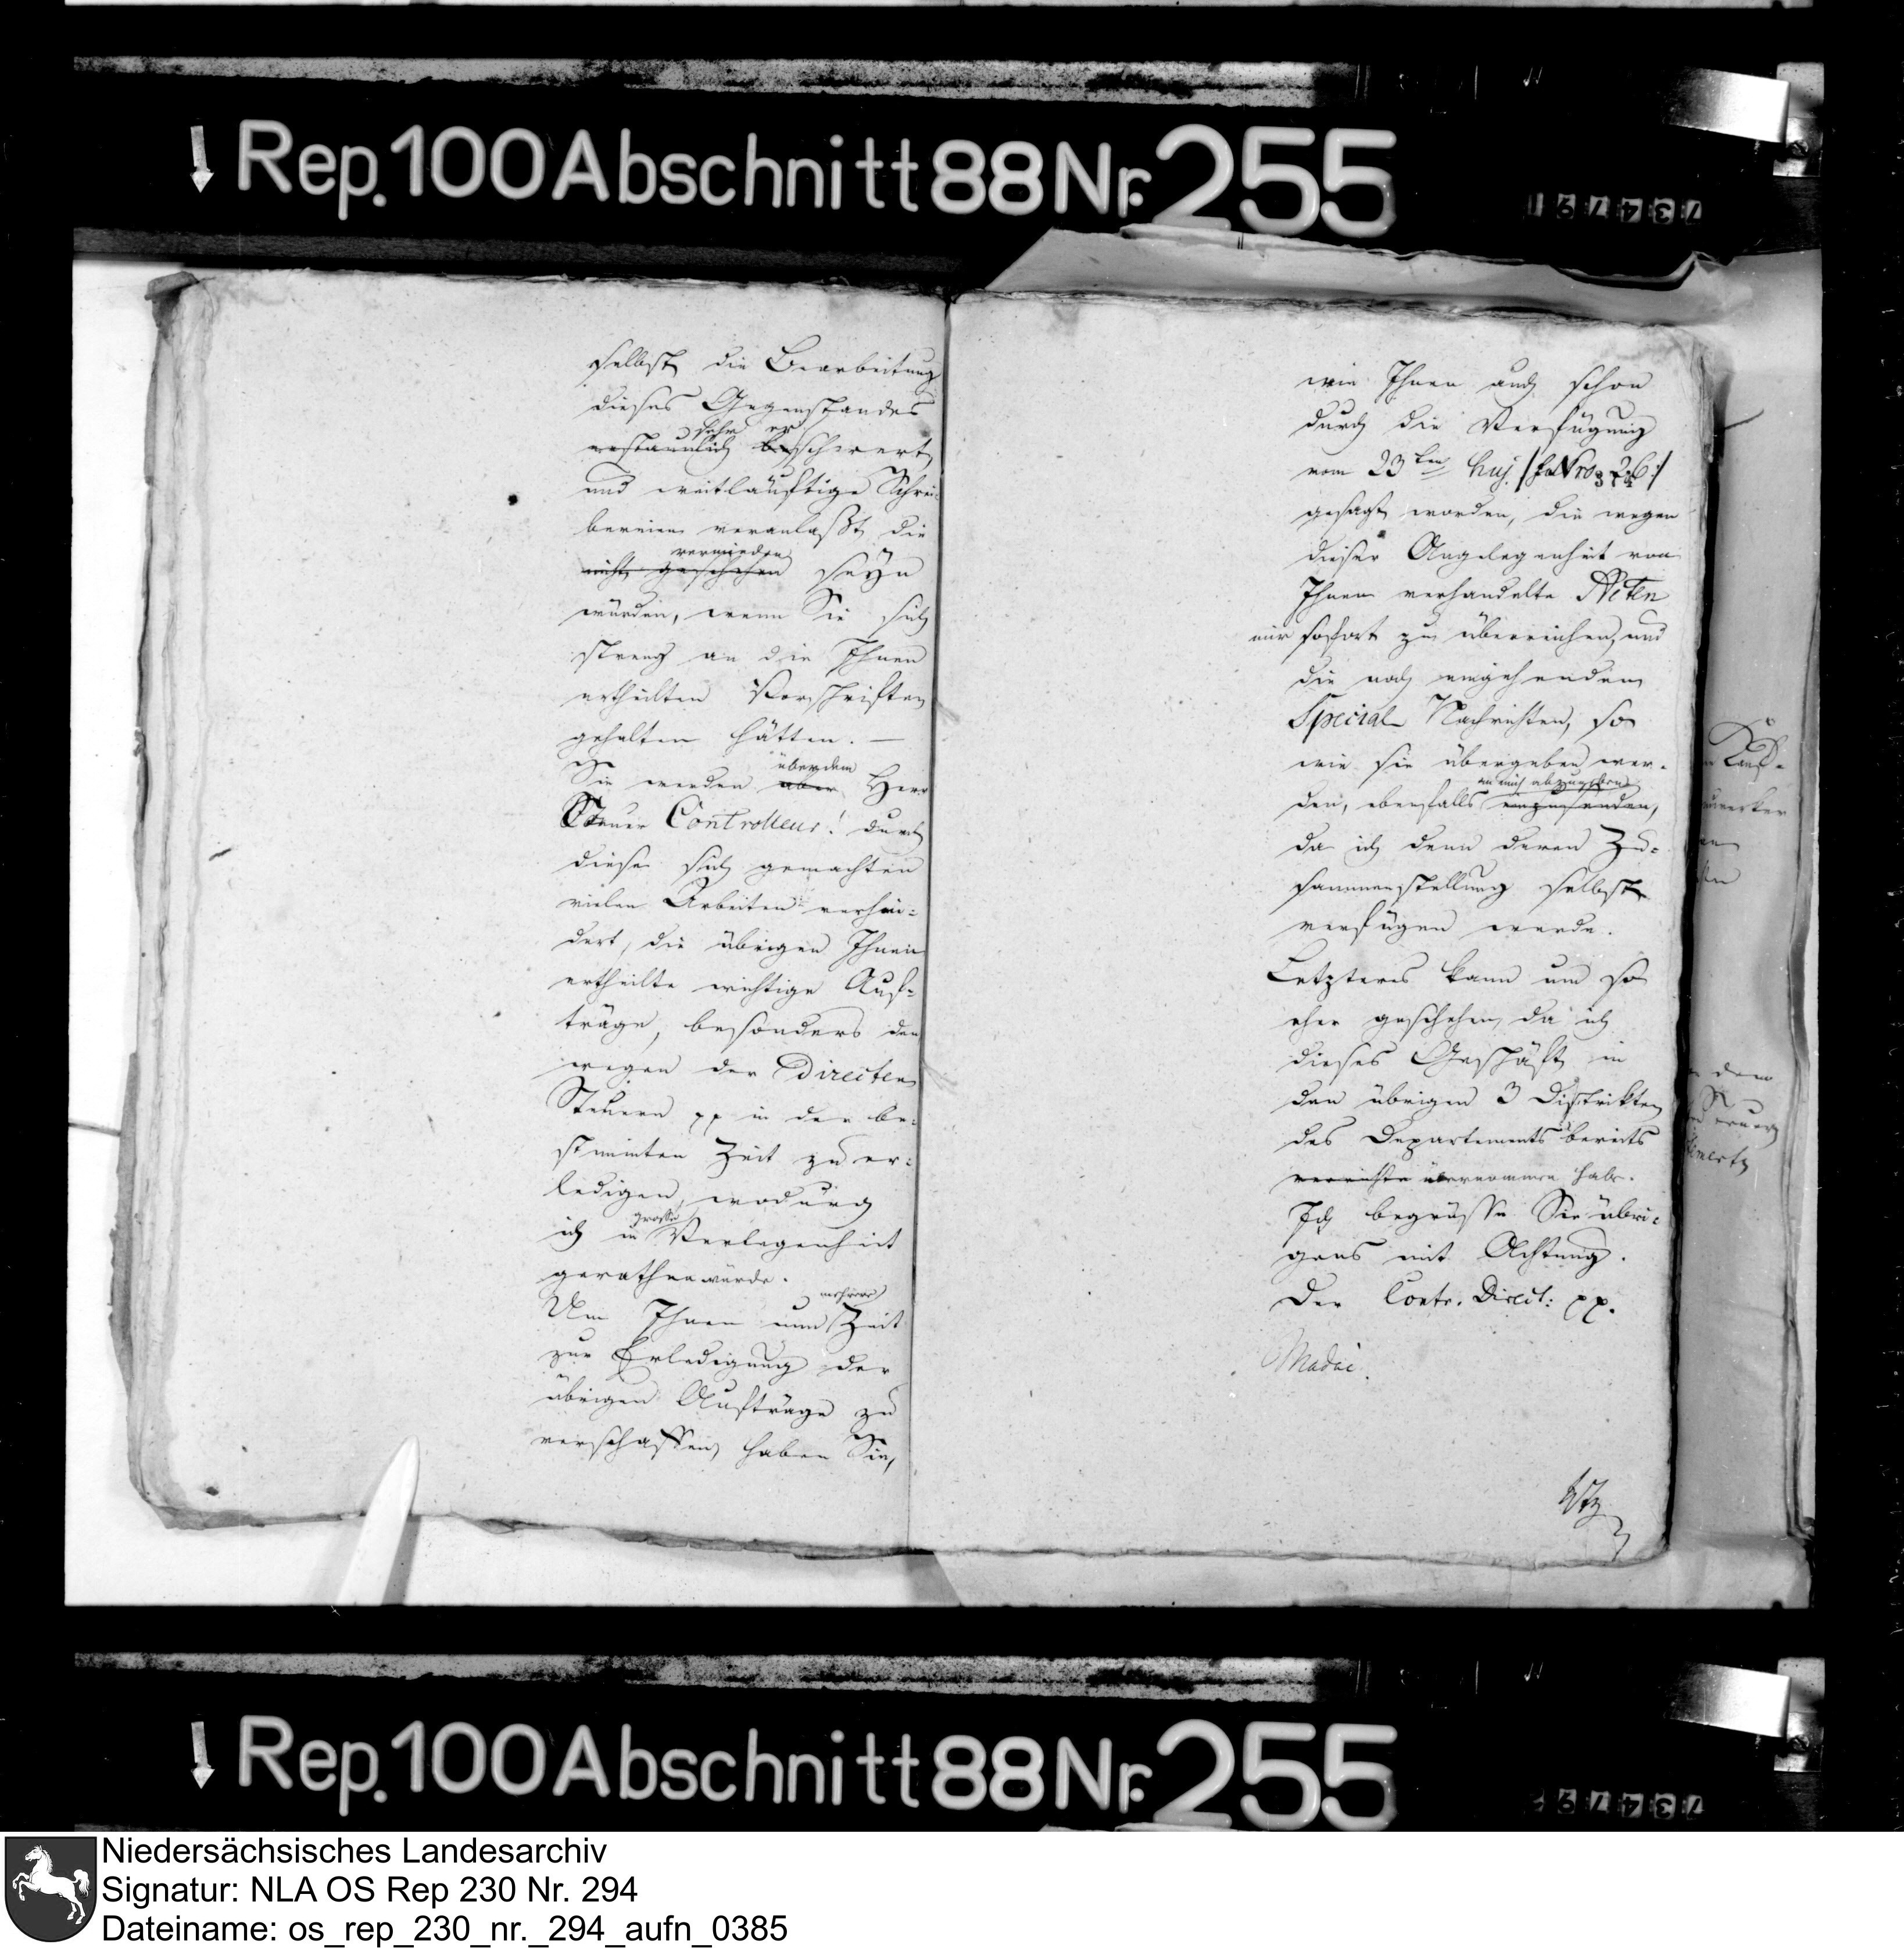 Rep. 100 Abschnitt 88 Nr. 255
selbst die Bearbeitung
dieses Gegenstandes
erstaunlich beschwert,
sehr er
und weitläuftige Schrei-
bereien veranlaßt, die
vermieden
nicht geschehen seyn
würden, wenn Sie sich
streng an die Ihnen
ertheilten Vorschriften
gehalten hätten. —
überdem
Sie werden aber Herr
Steuer Controlleur! durch
diese sich gemachten
vielen Arbeiten verhin-
dert, die übrigen Ihnen
ertheilte wichtige Auf-
träge, besonders den
wegen der Directen
Steuern pp in der be-
stimmten Zeit zu er-
ledigen, wodurch
große
ich in Verlegenheit
gerathen würde.
mehrere
Um Ihnen nun Zeit
zur Erledigung der
übrigen Aufträge zu
verschaffen, haben Sie,
wie Ihnen auch schon
durch die Verfügung
vom 23ten huj.
gesagt worden, die wegen
dieser Angelegenheit von
Ihnen verhandelte Acten
mir sofort zu überreichen, und
die noch eingehenden
Special Nachrichten, so
wie sie übergeben wer-
an mich abzugeben
den, ebenfalls einzusenden,
da ich denn deren Zu-
sammenstellung selbst
verfügen werde.
Letzteres kann um so
eher geschehen, da ich
dieses Geschäft in
den übrigen 3 Distrikten
des Departements bereits
verrichte übernommen habe.
Ich begrüsse Sie übri-
gens mit Achtung.
Der Contr. Direct: pp.
Madai.
Rep. 100 Abschnitt 88 Nr. 255
Niedersächsisches Landesarchiv
Signatur: NLA OS Rep 230 Nr. 294
Dateiname: os_rep_230_nr._294_aufn_0385